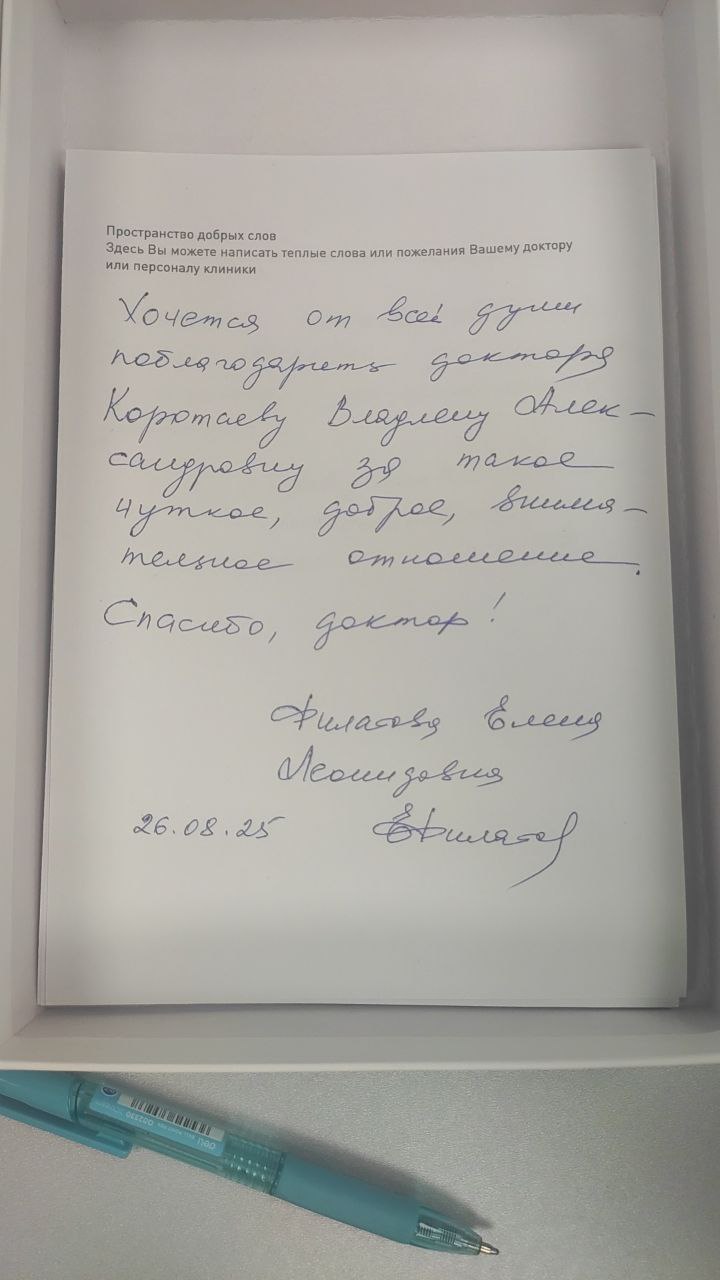 Пространство добрых слов
Здесь Вы можете написать теплые слова или пожелания Вашему доктору
или персоналу клиники
Хочется от всей души
поблагодарить доктора
Коротаеву Владлену Алек-
сандровну за такое
чуткое, доброе, внима-
тельное отношение.
Спасибо, доктор!
Филатова Елена
Леонидовна
26.08.25 ЕФилатов
deli